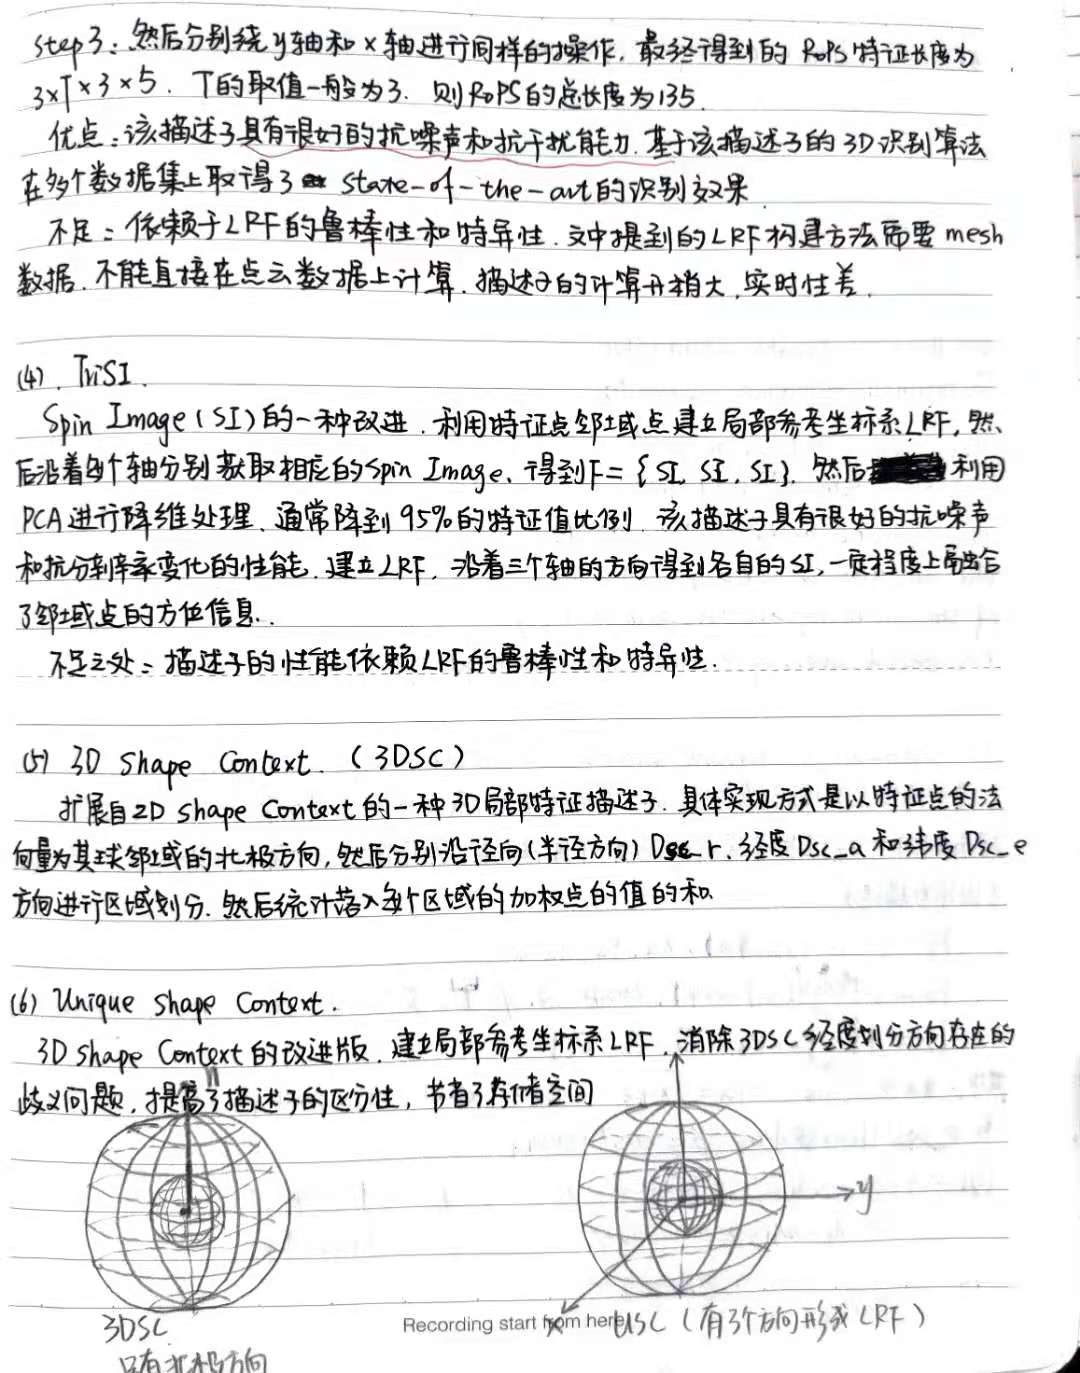 step3：然后分别绕y轴和x轴进行同样的操作，最终得到的RoPS特征长度为
3×T×3×5．T的取值一般为3．则RoPS的总长度为135．
优点：该描述子具有很好的抗噪声和抗干扰能力．基于该描述子的3D识别算法
在多个数据集上取得了state-of-the-art的识别效果．
不足：依赖于LRF的鲁棒性和特异性．文中提到的LRF构建方法需要mesh
数据．不能直接在点云数据上计算．描述子的计算开销大，实时性差．
(4)．TriSI．
Spin Image（SI）的一种改进．利用特征点邻域点建立局部参考坐标系LRF，然
后沿着每个轴分别获取相应的Spin Image、得到F={SI，SI，SI}．然后利用
PCA进行降维处理．通常降到95%的特征值比例．该描述子具有很好的抗噪声
和抗分辨率变化的性能．建立LRF，沿着三个轴的方向得到各自的SI，一定程度上融合
了邻域点的方位信息．
不足之处：描述子的性能依赖LRF的鲁棒性和特异性．
(5) 3D Shape Context．（3DSC）
扩展自2D Shape Context的一种3D局部特征描述子．具体实现方式是以特征点的法
向量为其球邻域的北极方向，然后分别沿径向（半径方向）Dsc_r、经度Dsc_a和纬度Dsc_e
方向进行区域划分．然后统计落入每个区域的加权点的值的和
(6) Unique Shape Context．
3D Shape Context的改进版．建立局部参考坐标系LRF，消除3DSC经度划分方向存在的
歧义问题，提高了描述子的区分性，节省了存储空间
n
y
x
3DSC
只有北极方向
Recording start from here
USC（有3个方向形成LRF）